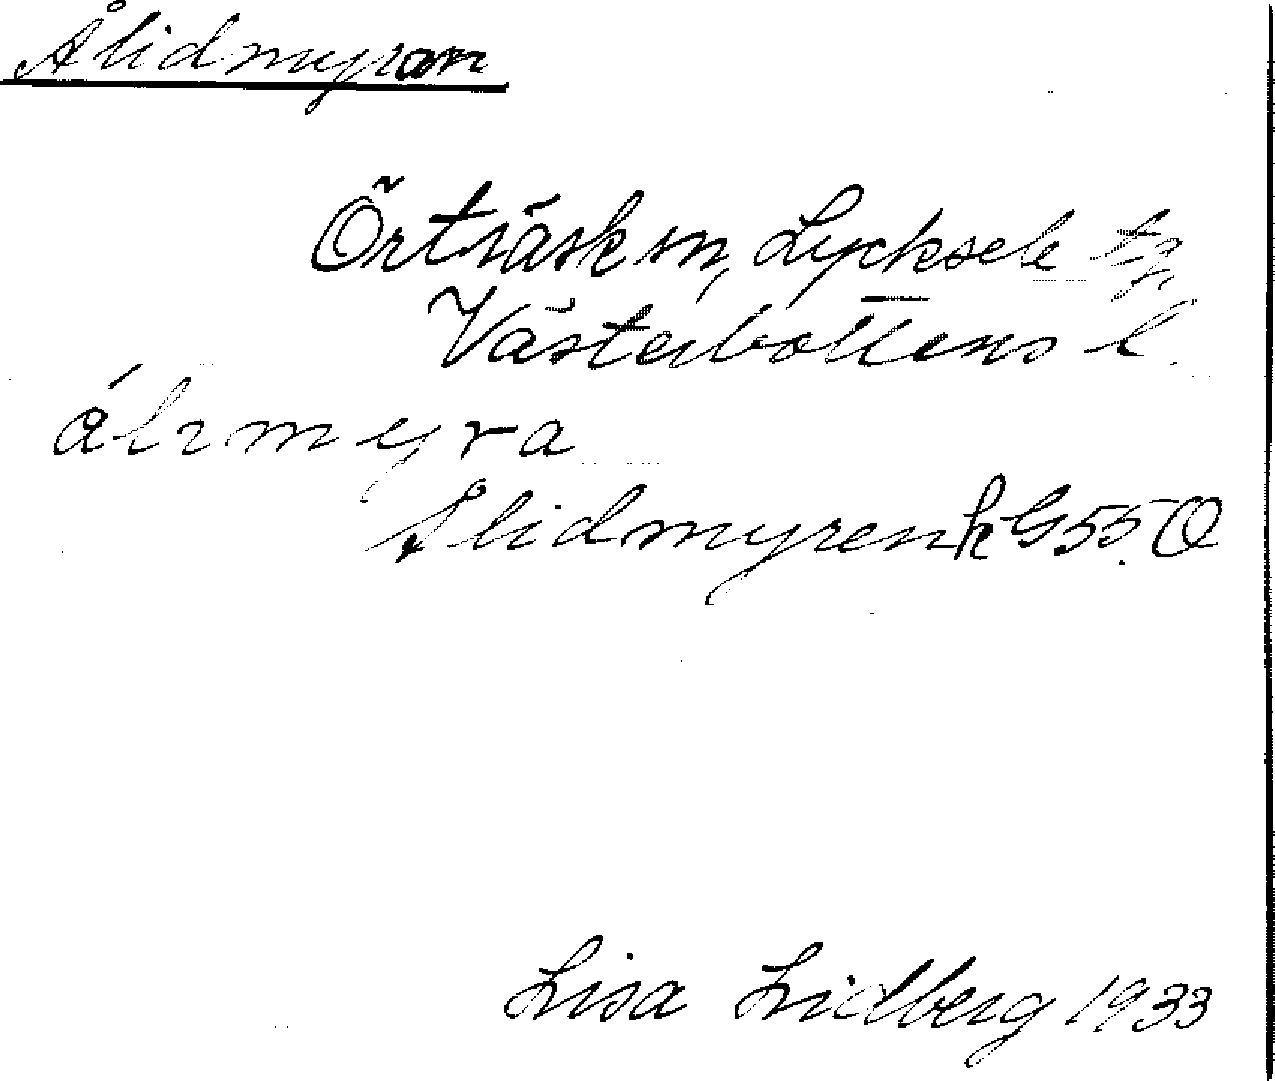 Ålidmyran
Örträsk sn, Lycksele tg,
Västerbottens l.
álimyra
Ålidmyren k G55. O
Lisa Lidberg 1933